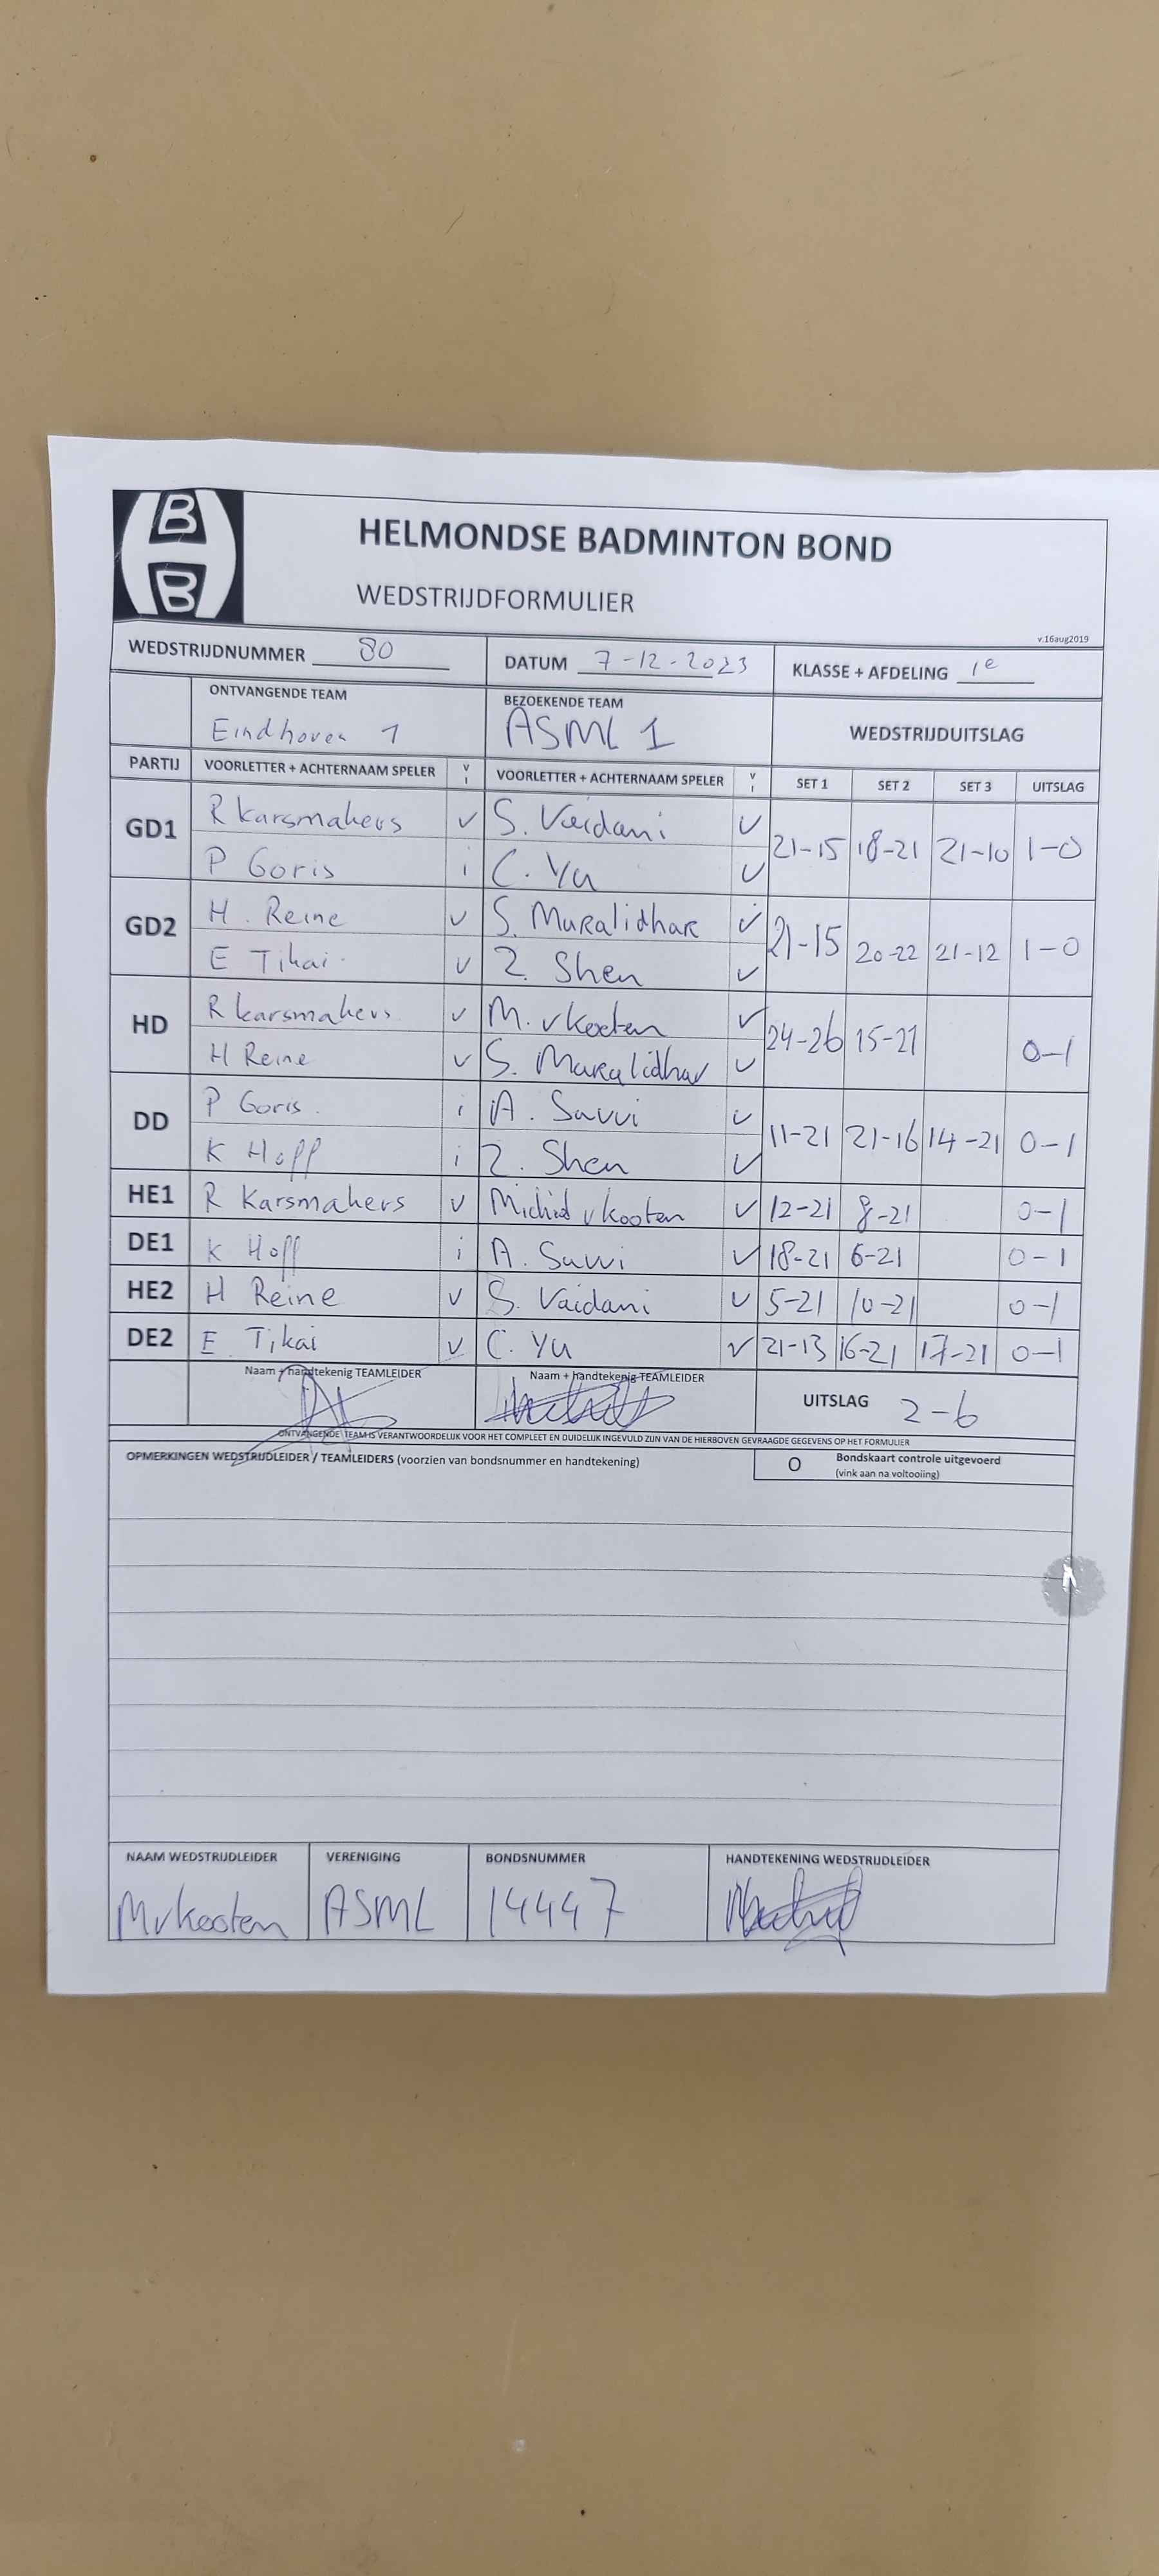 B
B
HELMONDSE BADMINTON BOND
WEDSTRIJDFORMULIER
v.16aug2019
WEDSTRIJDNUMMER 80 DATUM 7-12-2023 KLASSE + AFDELING 1e
ONTVANGENDE TEAM BEZOEKENDE TEAM
Eindhoven 1 ASML 1 WEDSTRIJDUITSLAG
PARTIJ VOORLETTER + ACHTERNAAM SPELER V I VOORLETTER + ACHTERNAAM SPELER V I SET 1 SET 2 SET 3 UITSLAG
GD1 R Karsmakers v S. Vaidani v 21-15 18-21 21-10 1-0
P Goris i C. Yu v
GD2 H. Reine v S. Muralidhar v 21-15 20-22 21-12 1-0
E Tikai v Z. Shen v
HD R Karsmakers v M. v Kooten v 24-26 15-21 0-1
H Reine v S. Muralidhar v
DD P Goris i A. Savvi v 11-21 21-16 14-21 0-1
K Hoff i Z. Shen v
HE1 R Karsmakers v Michiel v Kooten v 12-21 8-21 0-1
DE1 K Hoff i A. Savvi v 18-21 6-21 0-1
HE2 H Reine v S. Vaidani v 5-21 10-21 0-1
DE2 E Tikai v C. Yu v 21-13 16-21 17-21 0-1
Naam + handtekenig TEAMLEIDER Naam + handtekenig TEAMLEIDER UITSLAG 2-6
ONTVANGENDE TEAM IS VERANTWOORDELIJK VOOR HET COMPLEET EN DUIDELIJK INGEVULD ZIJN VAN DE HIERBOVEN GEVRAAGDE GEGEVENS OP HET FORMULIER
OPMERKINGEN WEDSTRIJDLEIDER / TEAMLEIDERS (voorzien van bondsnummer en handtekening) O Bondskaart controle uitgevoerd
(vink aan na voltooiing)
NAAM WEDSTRIJDLEIDER VERENIGING BONDSNUMMER HANDTEKENING WEDSTRIJDLEIDER
M v Kooten ASML 14447